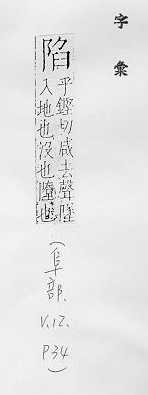 字彙
陷
乎鑑切咸去聲墜
入地也沒也隤也
(阜部.
V.12.
P34)